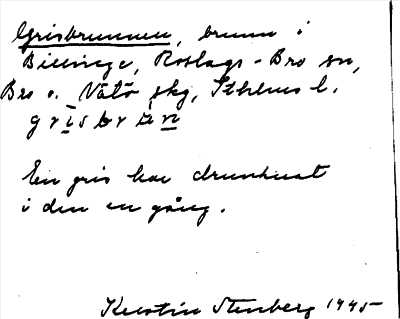 Grisbrunnen, brunn i
Billinge, Roslags-Bro sn,
Bro o. Vätö skg, Sthlms l.
En gris har drunknat
i den en gång.
Kerstin Stenberg 1945